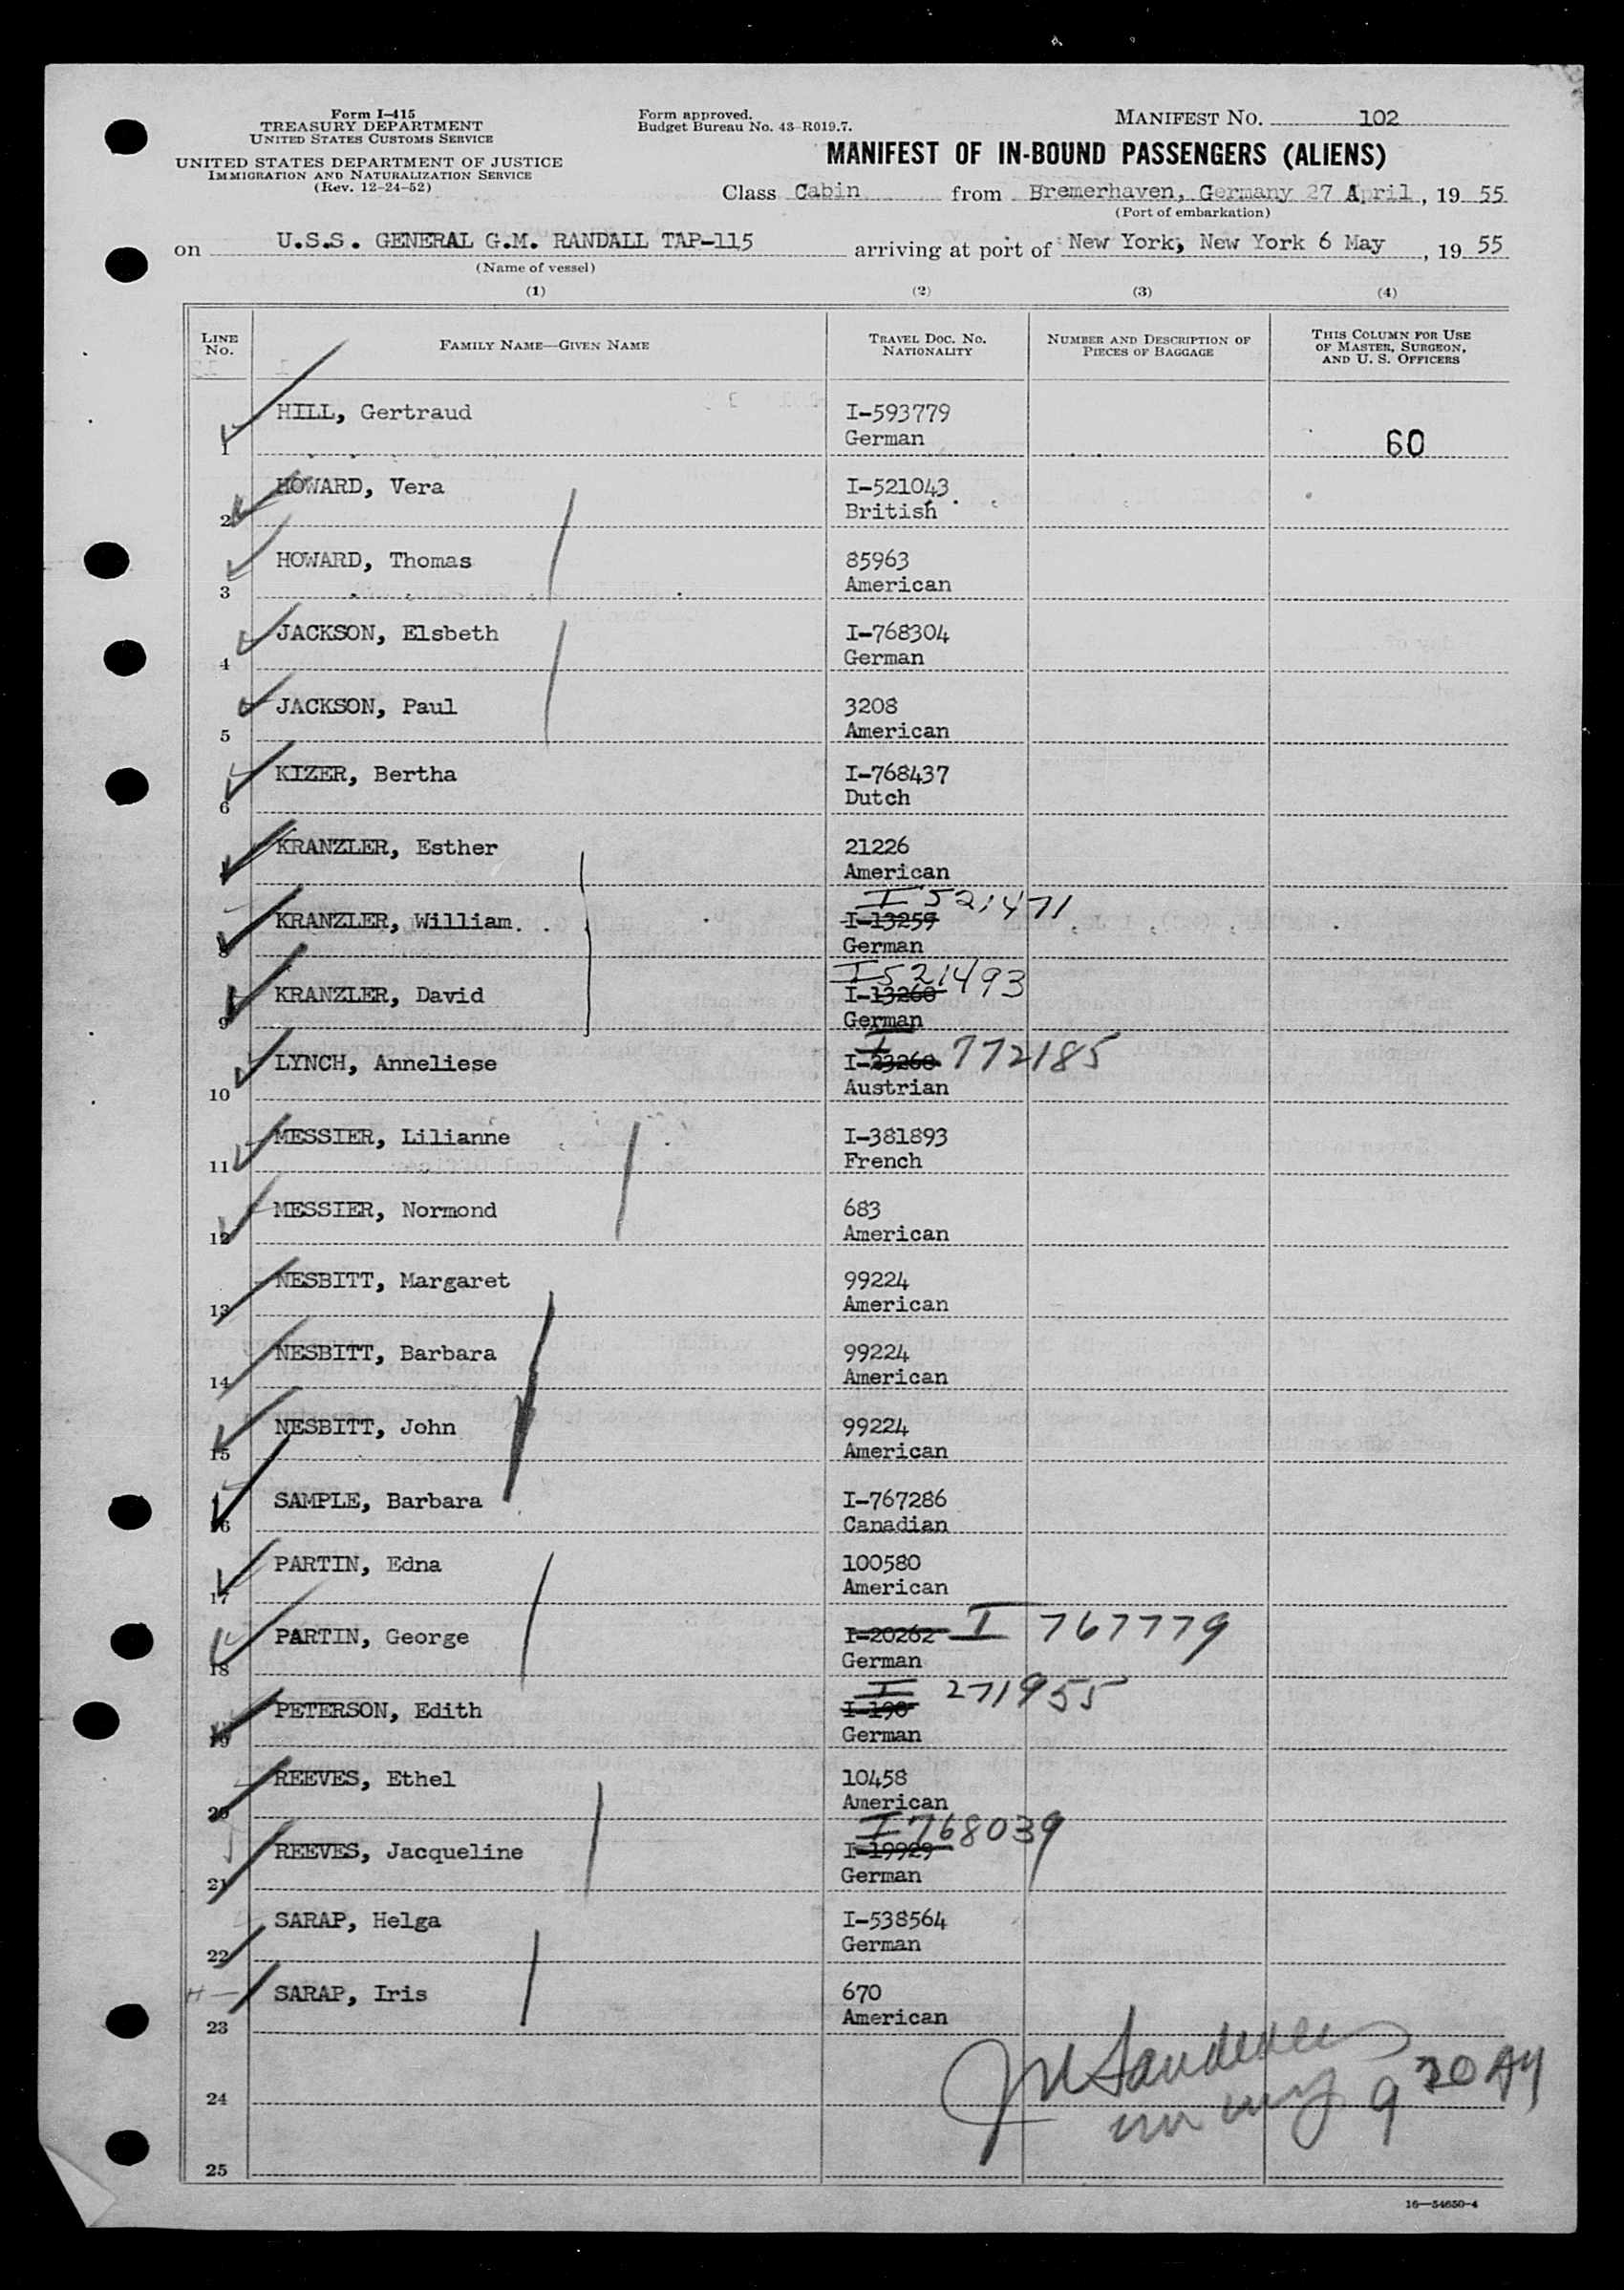 Form I-415
TREASURY DEPARTMENT
UNITED STATES CUSTOMS SERVICE
UNITED STATES DEPARTMENT OF JUSTICE
IMMIGRATION AND NATURALIZATION SERVICE
(Rev. 12-24-52)
Form approved.
Budget Bureau No. 43-R019.7.
MANIFEST NO. 102
MANIFEST OF IN-BOUND PASSENGERS (ALIENS)
Class Cabin from Bremerhaven, Germany 27 April, 19 55
(Port of embarkation)
on U.S.S. GENERAL G.M. RANDALL TAP-115 arriving at port of New York, New York 6 May, 19 55
(Name of vessel)
(1) (2) (3) (4)
LINE No. FAMILY NAME—GIVEN NAME TRAVEL DOC. NO. NATIONALITY NUMBER AND DESCRIPTION OF PIECES OF BAGGAGE THIS COLUMN FOR USE OF MASTER, SURGEON, AND U. S. OFFICERS
HILL, Gertraud I-593779
1 German 60
HOWARD, Vera I-521043
2 British
HOWARD, Thomas 85963
3 American
JACKSON, Elsbeth I-768304
4 German
JACKSON, Paul 3208
5 American
KIZER, Bertha I-768437
6 Dutch
KRANZLER, Esther 21226
American
I 521471
KRANZLER, William I-13259
8 German
I521493
KRANZLER, David I-13260
9 German
LYNCH, Anneliese I-23260 I 772185
10 Austrian
MESSIER, Lilianne I-381893
11 French
MESSIER, Normond 683
12 American
NESBITT, Margaret 99224
13 American
NESBITT, Barbara 99224
14 American
NESBITT, John 99224
15 American
SAMPLE, Barbara I-767286
16 Canadian
PARTIN, Edna 100580
17 American
PARTIN, George I-20262 I 767779
18 German
I 271955
PETERSON, Edith I-198
19 German
REEVES, Ethel 10458
20 American
I 768039
REEVES, Jacqueline I-19929
21 German
SARAP, Helga I-538564
22 German
SARAP, Iris 670
23 American
24
9 30 AM
25
16—54650-4